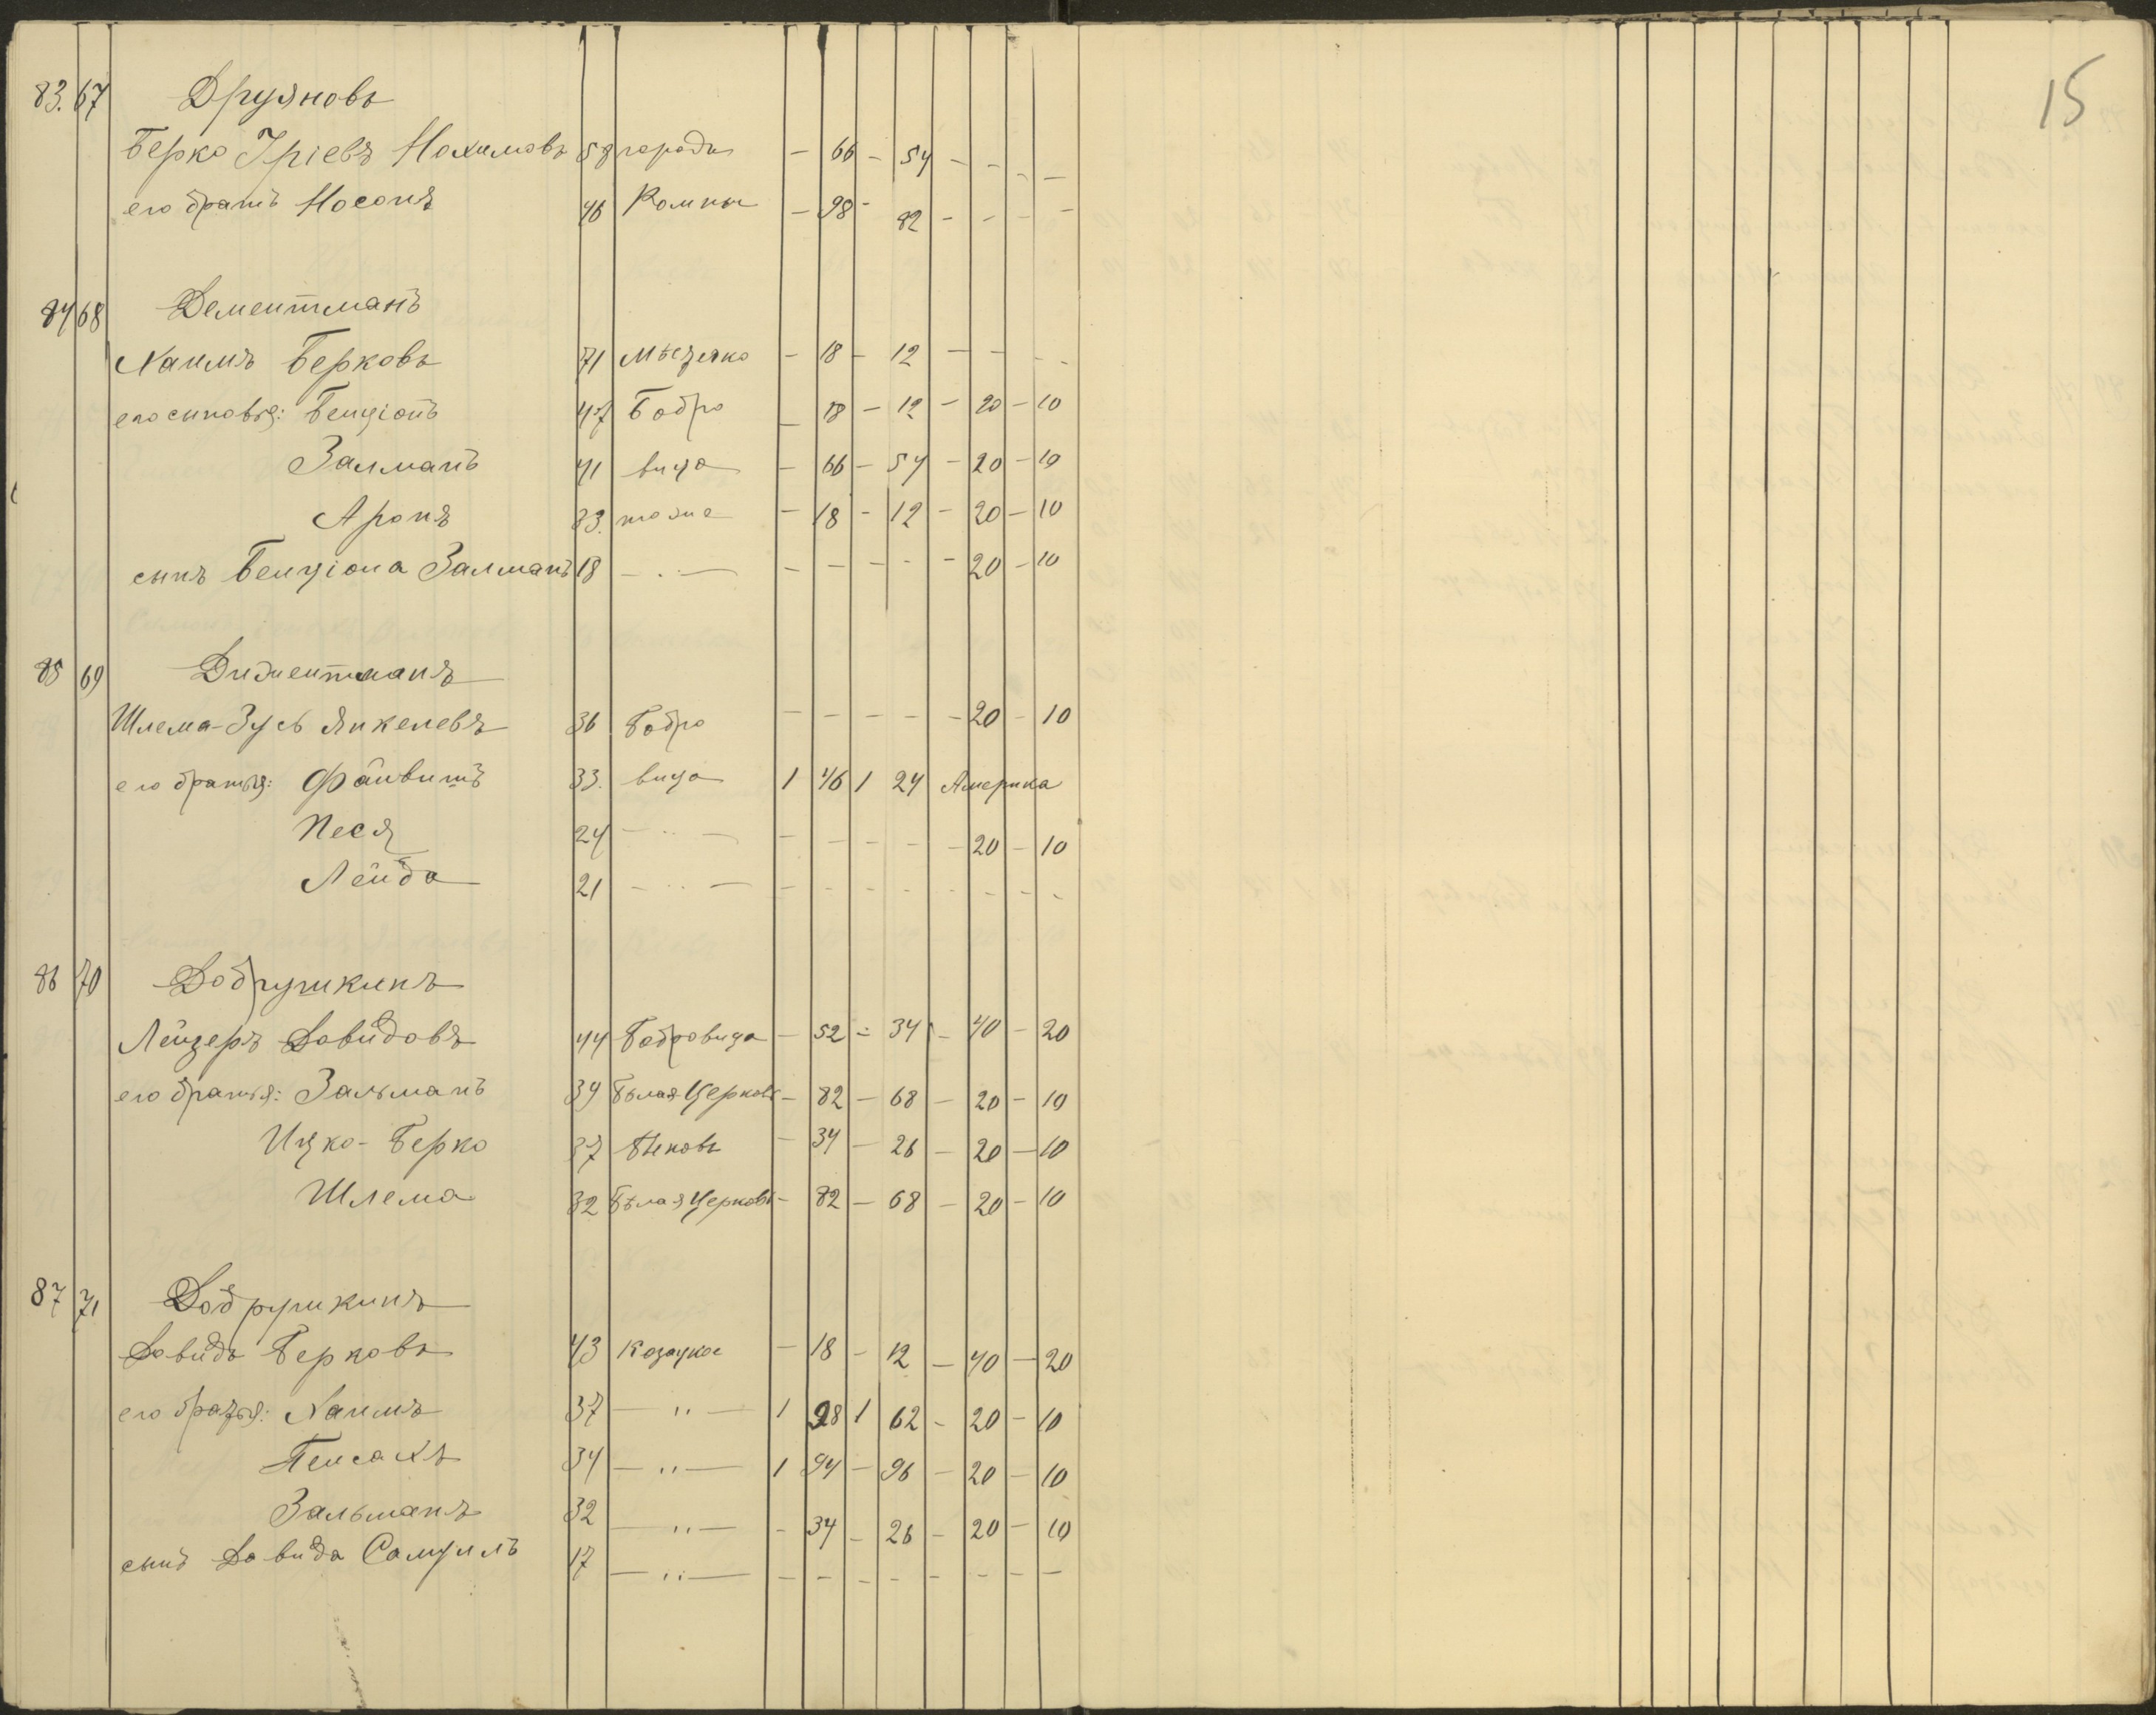 15
83. 67 Друяновъ
Берко Уріевъ Нохимовъ 58 городъ — 66 — 54 — — — —
его братъ Носонъ 46 Ромны — 98 — 82 — — — —
84 68 Дементманъ
Хаимъ Берковъ 71 Мѣстечко — 18 — 12 — — — —
его сыновья: Бенціонъ 47 Бобро — 18 — 12 — 20 — 10
Залманъ 41 вица — 66 — 54 — 20 — 10
Аронъ 33. тоже — 18 — 12 — 20 — 10
сынъ Бенціона Залманъ 18 — . — — — — — — 20 — 10
85 69 Диментманъ
Шлема-Зусь Янкелевъ 36 Бобро — — — — — 20 — 10
его братья: Файвишъ 33. вица 1 46 1 24 Америка
Песя 24 — .. — — — — — — 20 — 10
Лейба 21 — .. — — — — — — — — —
86 70 Добрушкинъ
Лейзеръ Довидовъ 44 Бобровица — 52 — 34 — 40 — 20
его братья: Зальманъ 39 Бѣлая Церковь — 82 — 68 — 20 — 10
Ицко-Берко 37 — 34 — 26 — 20 — 10
Шлема 32 Бѣлая Церковь — 82 — 68 — 20 — 10
87 71 Добрушкинъ
Довидъ Берковъ 43 Козацкое — 18 — 12 — 40 — 20
его братья: Хаимъ 37 — " — 1 98 1 62 — 20 — 10
Пейсахъ 34 — " — 1 94 — 96 — 20 — 10
Зальманъ 32 — " — — 34 — 26 — 20 — 10
сынъ Довида Самуилъ 17 — " — — — — — — — — —